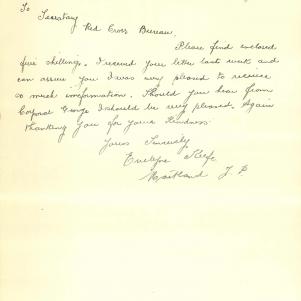 To Secretary
Red Cross Bureau.
Please find enclosed
five shillings. I received your letter last week and
can assure you I was very pleased to receive
so much information. Should you hear from
Corporal George I should be very pleased. Again
thanking you for your kindness
Yours Sincerely,
Evelyne Keefe
Maitland J. P.